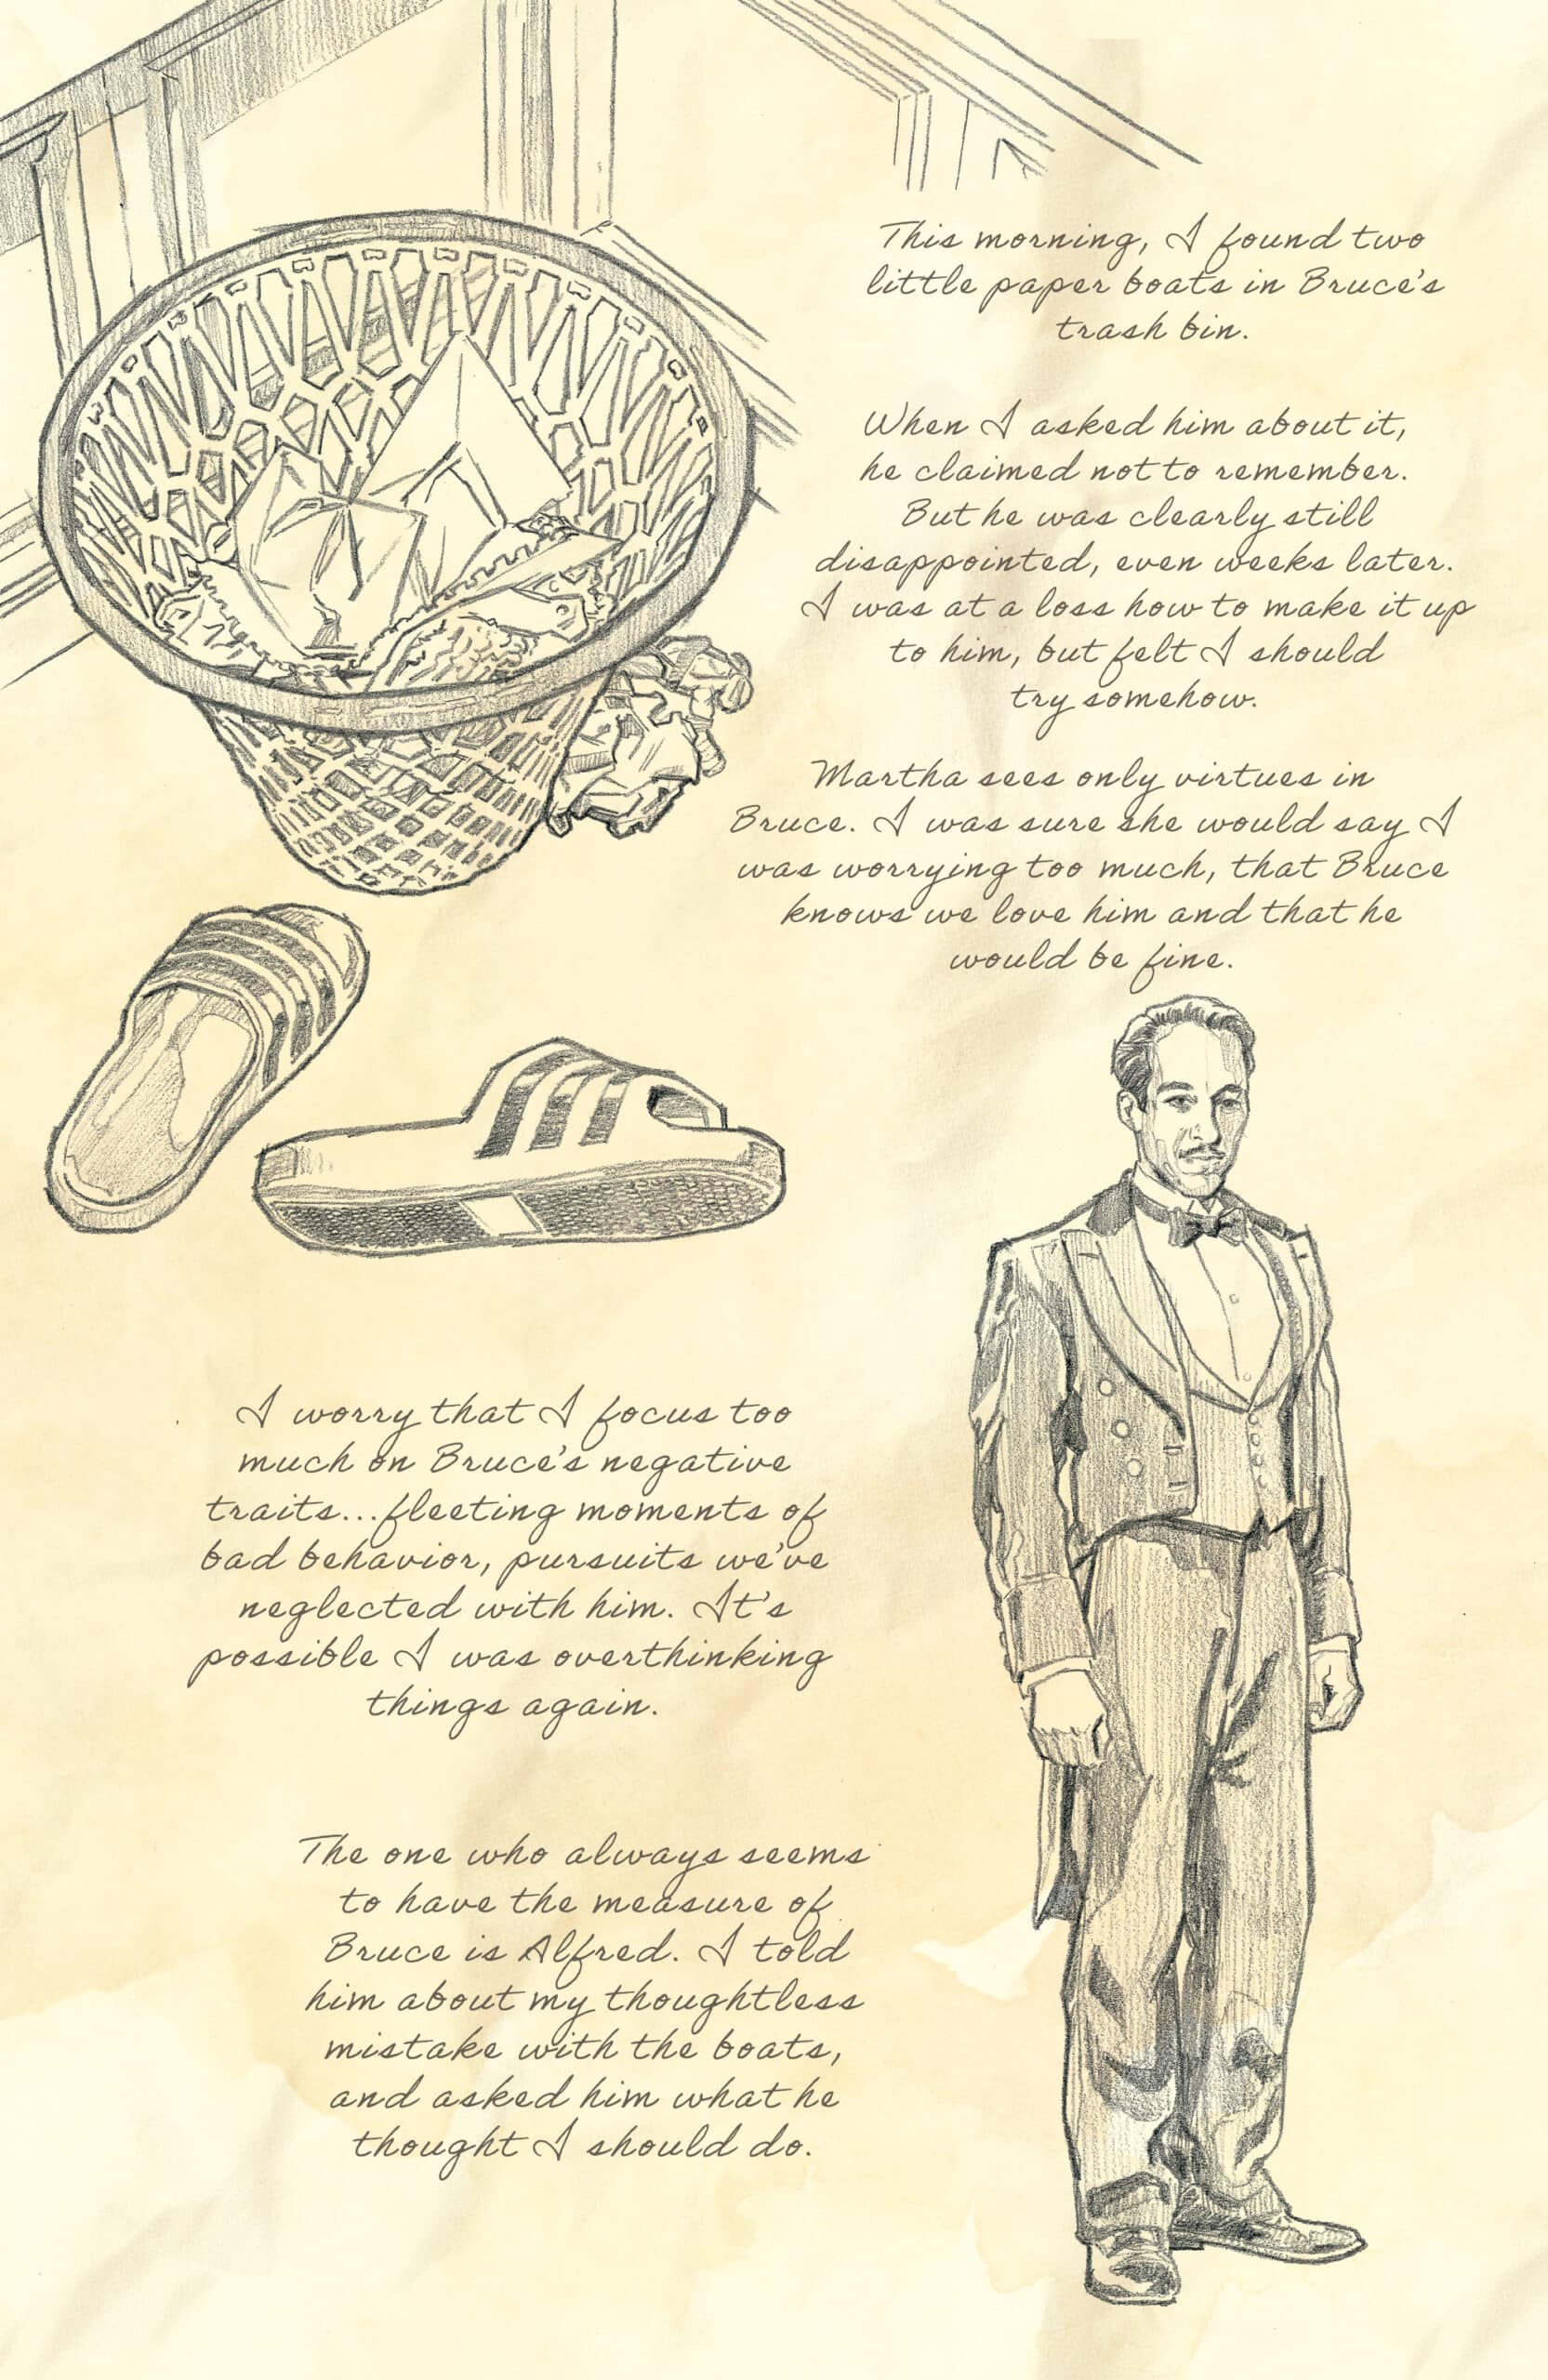 This morning, I found two
little paper boats in Bruce's
trash bin.
When I asked him about it,
he claimed not to remember.
But he was clearly still
disappointed, even weeks later.
I was at a loss how to make it up
to him, but felt I should
try somehow.
Martha sees only virtues in
Bruce. I was sure she would say I
was worrying too much, that Bruce
knows we love him and that he
would be fine.
I worry that I focus too
much on Bruce's negative
traits...fleeting moments of
bad behavior, pursuits we've
neglected with him. It's
possible I was overthinking
things again.
The one who always seems
to have the measure of
Bruce is Alfred. I told
him about my thoughtless
mistake with the boats,
and asked him what he
thought I should do.